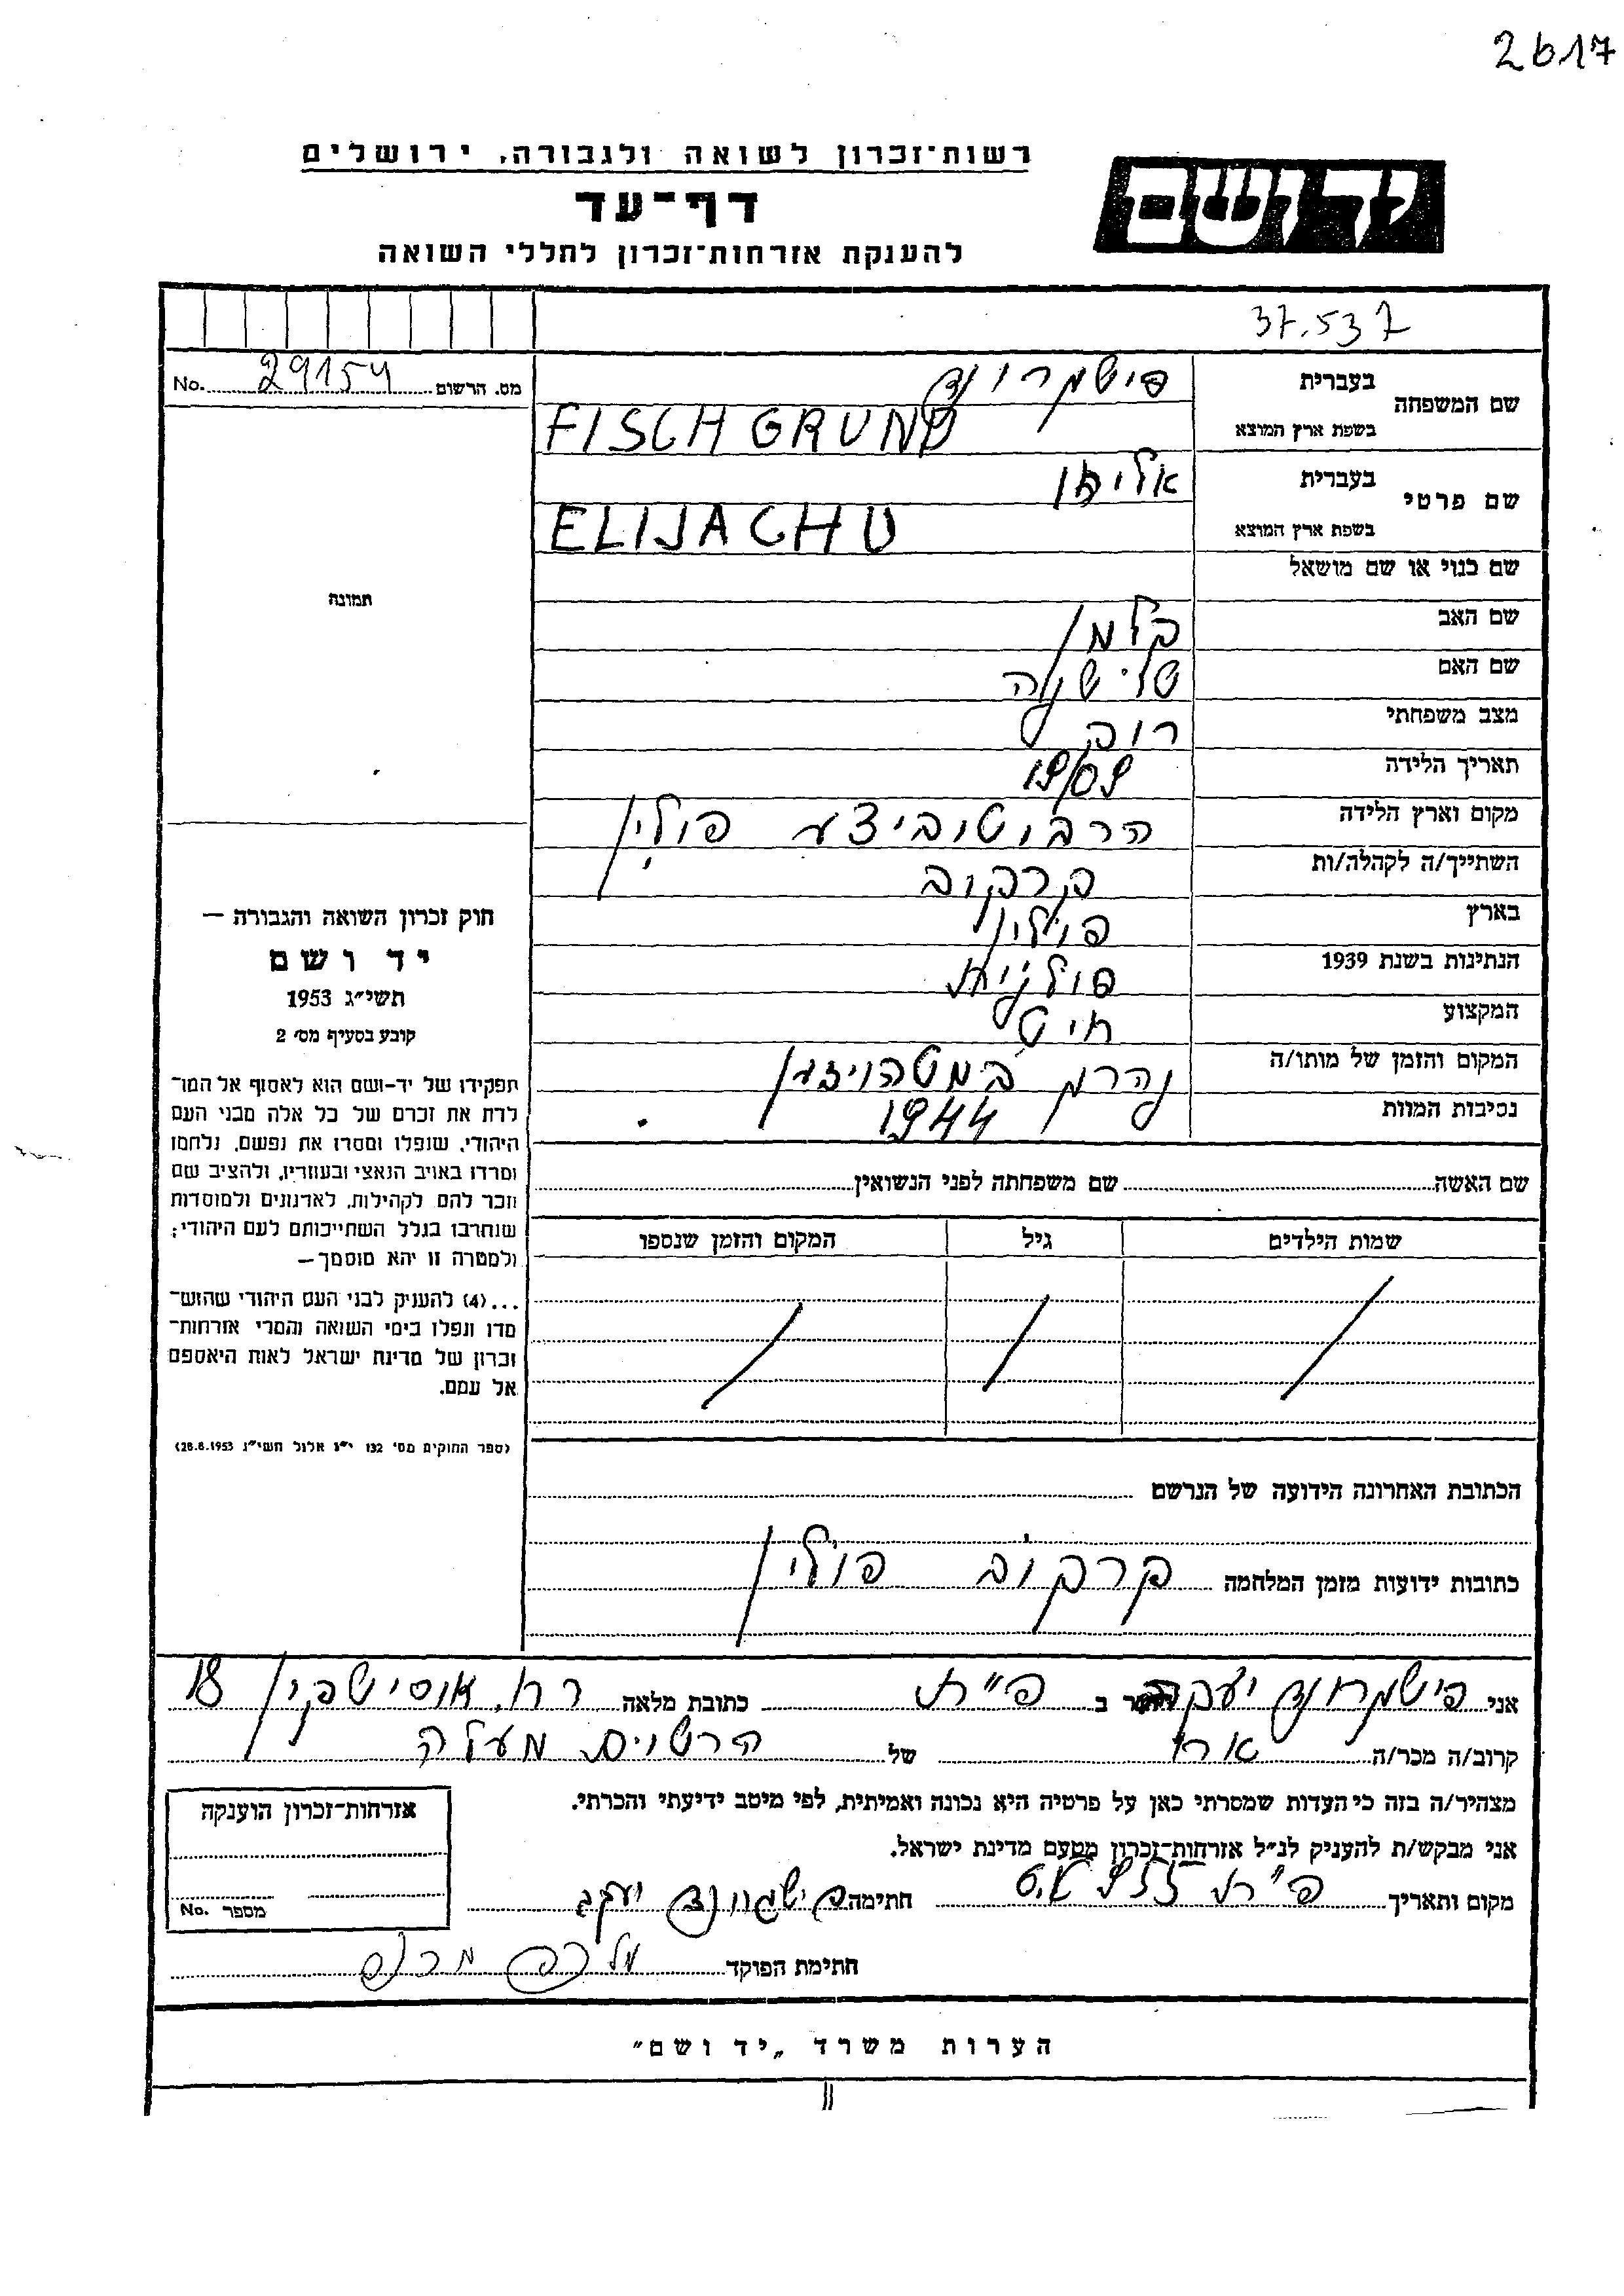 2617
רשות-זכרון לשואה ולגבורה, ירושלים
יד ושם
דף-עד
להענקת אזרחות-זכרון לחללי השואה
37.537
No. 29154 מס. הרשום
שם המשפחה
בעברית
בשפת ארץ המוצא FISCHGRUND
שם פרטי
בעברית אליהו
בשפת ארץ המוצא ELIJACHU
שם כנוי או שם מושאל
שם האב קלמן
שם האם
מצב משפחתי רווק
תאריך הלידה 1909
מקום וארץ הלידה פולין
השתייך/ה לקהלה/ות קרקוב
בארץ פולין
הנתינות בשנת 1939 פולנית
המקצוע חיט
המקום והזמן של מותו/ה נהרג
נסיבות המוות 1944
תמונה
חוק זכרון השואה והגבורה —
יד ושם
תשי"ג 1953
קובע בסעיף מס' 2
תפקידו של יד-ושם הוא לאסוף אל המו-
לדת את זכרם של כל אלה מבני העם
היהודי, שנפלו ומסרו את נפשם, נלחמו
ומרדו באויב הנאצי ובעוזריו, ולהציב שם
וזכר להם לקהילות, לארגונים ולמוסדות
שנחרבו בגלל השתייכותם לעם היהודי;
ולמטרה זו יהא מוסמך—
...(4) להעניק לבני העם היהודי שהוש-
מדו ונפלו בימי השואה והמרי אזרחות-
זכרון של מדינת ישראל לאות היאספם
אל עמם.
(ספר החוקים מס' 132 י"ז אלול תשי"ג 28.8.1953)
שם האשה שם משפחתה לפני הנשואין
שמות הילדים גיל המקום והזמן שנספו
הכתובת האחרונה הידועה של הנרשם
כתובות ידועות מזמן המלחמה קרקוב פולין
אני יעקב הגר ב פ"ת כתובת מלאה רח. אוסישקין 18
קרוב/ה מכר/ה אח של הרשום מעלה
מצהיר/ה בזה כי העדות שמסרתי כאן על פרטיה היא נכונה ואמיתית, לפי מיטב ידיעתי והכרתי.
אני מבקש/ת להעניק לנ"ל אזרחות-זכרון מטעם מדינת ישראל.
מקום ותאריך פ"ת חתימה יעקב
חתימת הפוקד
אזרחות-זכרון הוענקה
No. מספר
הערות משרד „יד ושם"